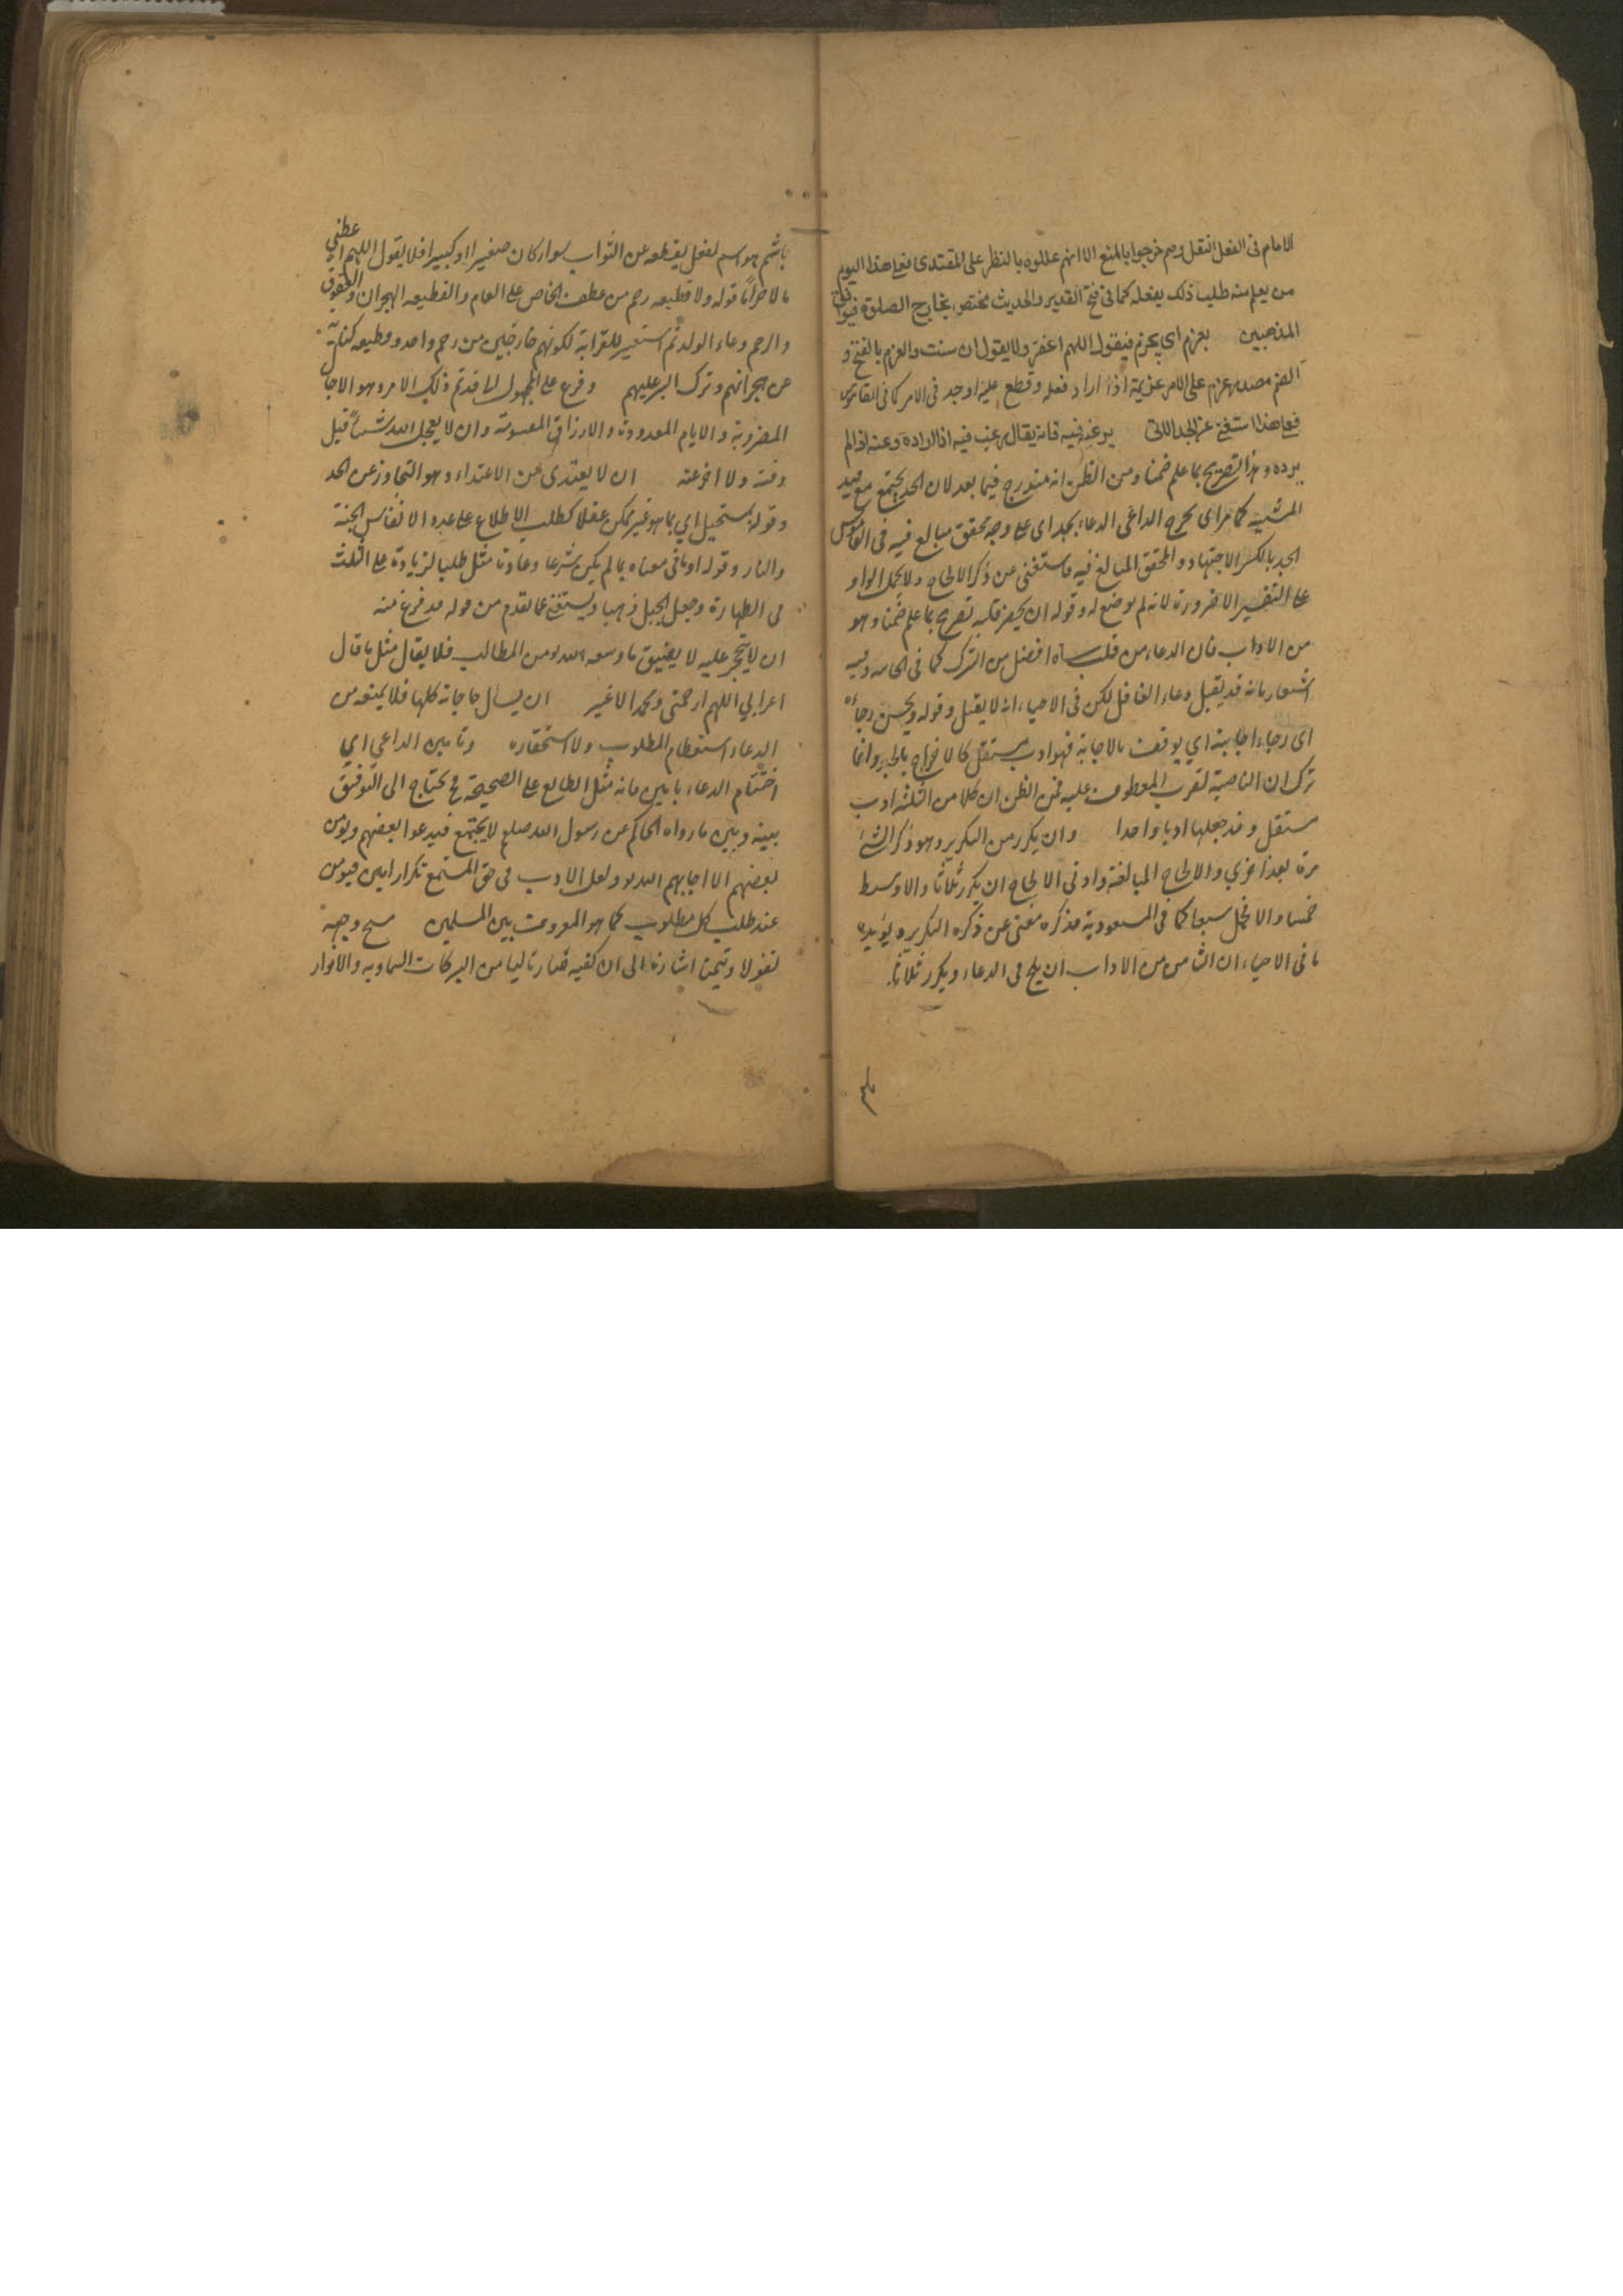 الامام فى الفعل النقل وهم خرجوا بالمنع الا انهم عللوه بالنظر على المقتدى فعلى هذا اليوم
من يعلم منه طلب ذلك يفعله كما فى فتح القدير والحديث مختص بخارج الصلوة فيوافق
المذهبين يعزم اى يجزم فيقول اللهم اغفر ولا يقول ان شئت والعزم بالفتح و
الضم مصدر عزم على الامر عزيمة اذا اراد فعله وقطع عليه او جد فى الامر كما فى القاموس
فعلى هذا استغنى عن الجد الاتى يرغبه فيه فانه يقال رغب فيه اذا اراده وعنه اذا لم
يرده وهذا تصريح بما علم ضمنا ومن الظن انه مندرج فيما بعد لان الجد يجتمع مع قيد
المشية كما مر اى يخرج الداعى الدعاء بجد اى على وجه تحقق مبالغ فيه فى القاموس
الجد بالكسر الاجتهاد والمحقق المبالغ فيه فاستغنى عن ذكر الالحاح ولا يحمل الواو
على التفسير الا ضرورة لانه لم يوضع له وقوله ان يحضر قلبه تصريح بما علم ضمنا وهو
من الاداب فان الدعاء من قلب ساه افضل من الترك كما فى وفيه
اشعار بانه قد يقبل دعاء الغافل لكن فى الاحياء انه لا يقبل وقوله ويحسن رجاءه
اى رجاء اجابته اي يوقن بالاجابة فهو ادب مستقل كالاخراج بالجد وانما
ترك ان الناصبة لقرب المعطوف عليه فمن الظن ان كلا من الثلثة ادب
مستقل وقد جعلها ادبا واحدا وان يكرر من التكرير وهو ذكر الشئ
مرة بعد اخري والالحاح المبالغة وادنى الالحاح ان يكرر ثلاثا والاوسط
خمسا والاكمل سبعا كما فى المسعودية فذكره مغنى عن ذكره التكرير ويؤيده
ما فى الاحياء ان الثامن من الاداب ان يلح فى الدعاء ويكرر ثلاثا
باثم هو اسم لفعل يقطعه عن الثواب سواء كان صغيرا او كبيرا فلا يقول اللهم اعطني
مالا حراما قوله ولا قطيعه رحم من عطف الخاص على العام والقطيعه الهجران والعقوق
والرحم وعاء الولد ثم استعير للقرابة لكونهم خارجين من رحم واحد وقطيعه كناية
عن هجرانهم وترك البر عليهم وفرغ على المجهول لما قد تم ذلك الامر وهو الاجال
المضروبة والايام المعدودة والارزاق المقسومة وان لا يعجل الله شيئا قبل
وقته ولا اخر عنه ان لا يعتدى من الاعتداء وهو التجاوز عن الحد
وقوله بمستحيل اي بما هو غير ممكن عقلا كطلب الاطلاع على عدد الانفاس الجنة
والنار وقوله او ما فى معناه ما لم يكن شرعا وعادة مثل طلب الزيادة على الثلث
فى الطهارة وجعل الجبل ذهبا ويستغنى عما تقدم من قوله قد فرغ منه
ان لا يتحجر عليه لا يضيق ما وسعه الله من المطالب فلا يقال مثل ما قال
اعرابي اللهم ارحمنى ومحمدا لا غير ان يسأل حاجاته كلها فلا يمنعه من
الدعاء استعظام المطلوب ولا استحقاره وتامين الداعى اي
اختتام الدعاء بامين فانه مثل الطابع على الصحيفة فح يحتاج الى التوفيق
بينه وبين ما رواه الحاكم عن رسول الله صلعم لا يجتمع فيدعو بعضهم ويؤمن
بعضهم الا اجابهم الله ولعل الادب فى حق المستمع تكرار امين فيؤمن
عند طلب كل مطلوب كما هو المعروف بين المسلمين مسح وجهه
تفولا وتيمنا اشارة الى ان كفيه من البركات السماويه والانوار